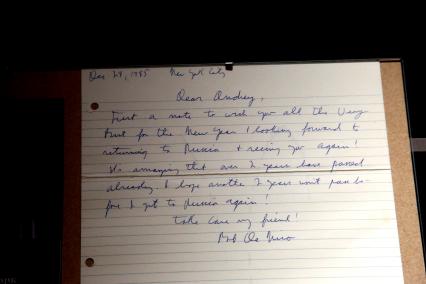 Dec 29, 1985 New York City
Dear Andrey,
Just a note to wish you all the Very
Best for the New Year & looking forward to
returning to Russia & seeing you again!
It's annoying that over 2 years have passed
already. I hope another 2 years won't pass be-
fore I get to Russia again!
Take care my friend!
Bob De Niro